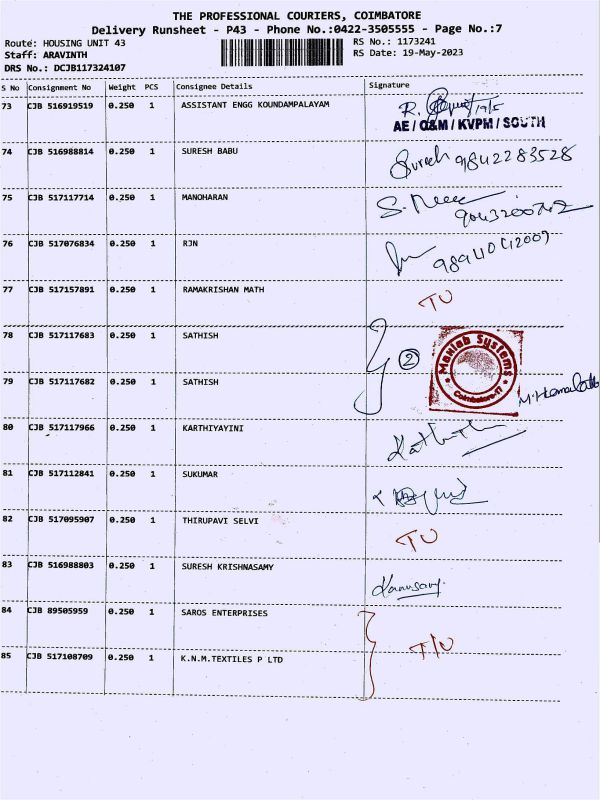 THE PROFESSIONAL COURIERS, COIMBATORE
Delivery Runsheet - P43 - Phone No.:0422-3505555 - Page No.:7
Route: HOUSING UNIT 43 RS No.: 1173241
Staff: ARAVINTH RS Date: 19-May-2023
DRS No.: DCJB117324107
S No Consignment No Weight PCS Consignee Details Signature
73 CJB 516919519 0.250 1 ASSISTANT ENGG KOUNDAMPALAYAM
AE / O&M / KVPM / SOUTH
74 CJB 516988814 0.250 1 SURESH BABU Suresh 9842283528
75 CJB 517117714 0.250 1 MANOHARAN
76 CJB 517076834 0.250 1 RJN
77 CJB 517157891 0.250 1 RAMAKRISHAN MATH TU
78 CJB 517117683 0.250 1 SATHISH
2
Maxlab Systems
Coimbatore-17
79 CJB 517117682 0.250 1 SATHISH
80 CJB 517117966 0.250 1 KARTHIYAYINI
81 CJB 517112841 0.250 1 SUKUMAR
82 CJB 517095907 0.250 1 THIRUPAVI SELVI TU
83 CJB 516988803 0.250 1 SURESH KRISHNASAMY
84 CJB 89505959 0.250 1 SAROS ENTERPRISES
T/U
85 CJB 517108709 0.250 1 K.N.M.TEXTILES P LTD